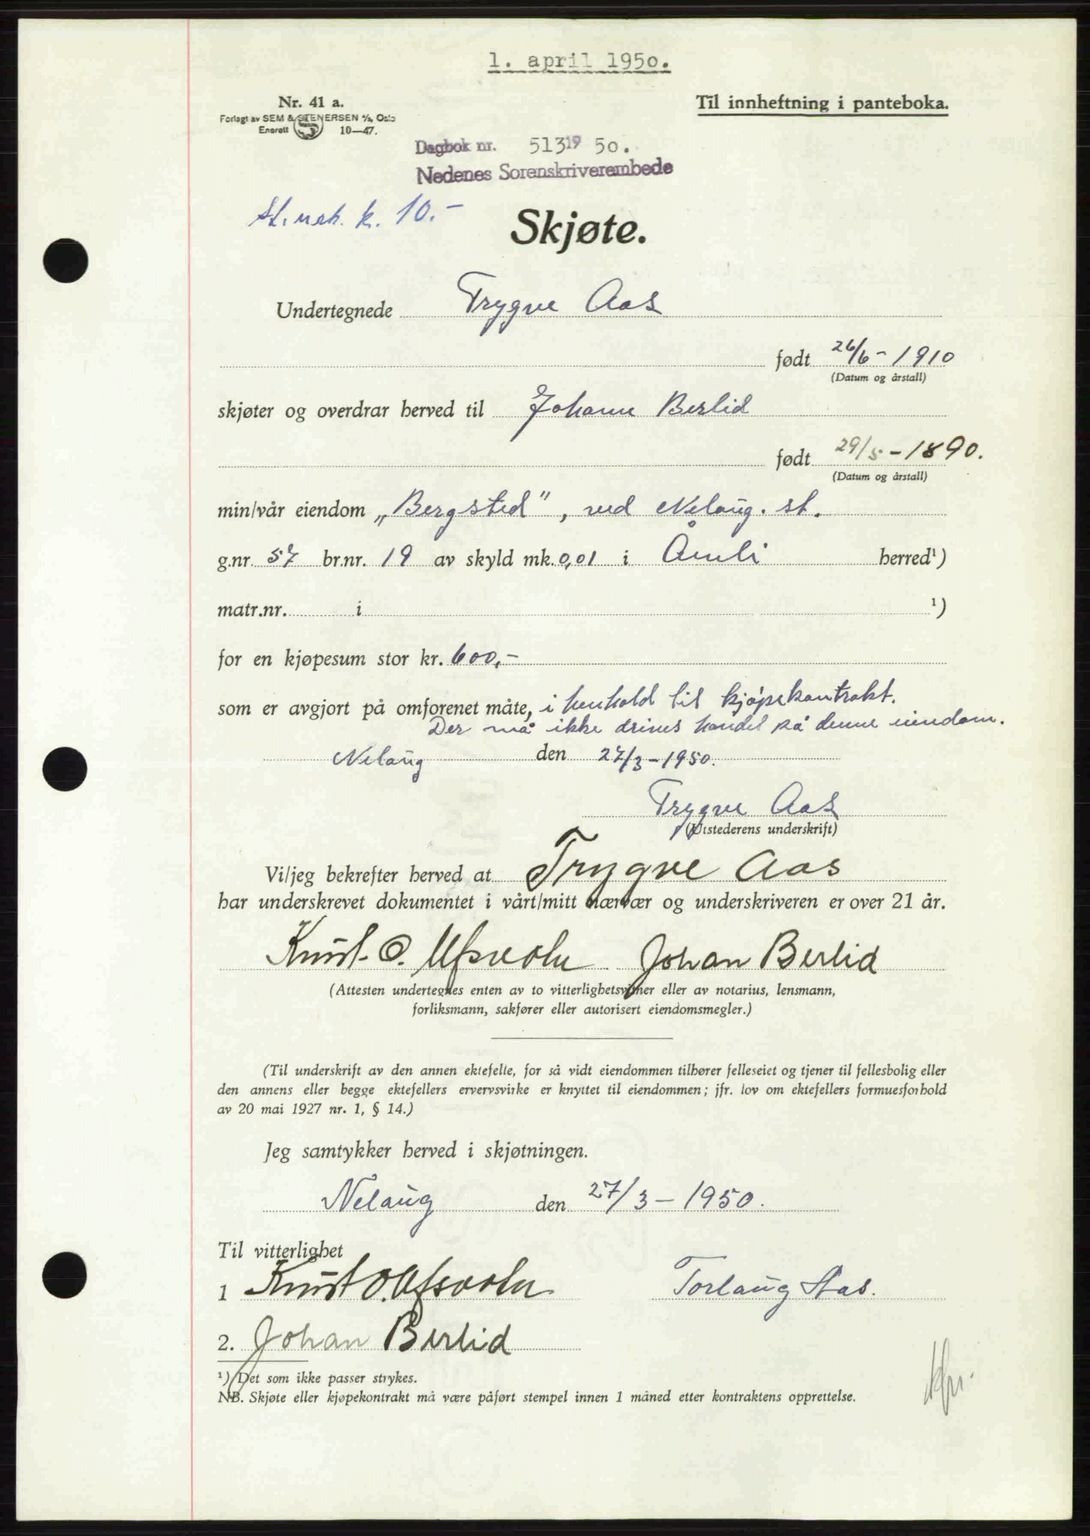 1. april 1950.
Nr. 41 a.
Til innheftning i panteboka.
Forlagt av SEM & STENERSEN A/S, Oslo
Enerett S 10—47.
Dagbok nr. 513 19 50.
Nedenes Sorenskriverembede
St.merk. k. 10.-
Skjøte.
Undertegnede Trygve Aas
født 26/6-1910
(Datum og årstall)
skjøter og overdrar herved til Johann Berlid
født 29/5-1890.
(Datum og årstall)
min/vår eiendom „Bergsted", ved Nelaug. st.
g.nr. 57 br.nr. 19 av skyld mk. 0,01 i Åmli herred¹)
matr.nr. i ¹)
for en kjøpesum stor kr. 600,-
som er avgjort på omforenet måte, i henhold til kjøpekontrakt.
Der må ikke drives handel på denne eiendom.
Nelaug den 27/3-1950.
Trygve Aas
(Utstederens underskrift)
Vi/jeg bekrefter herved at Trygve Aas
har underskrevet dokumentet i vårt/mitt nærvær og underskriveren er over 21 år.
Knut O. Ufsvatn Johan Berlid
(Attesten undertegnes enten av to vitterlighetsvitner eller av notarius, lensmann,
forliksmann, sakfører eller autorisert eiendomsmegler.)
(Til underskrift av den annen ektefelle, for så vidt eiendommen tilhører felleseiet og tjener til fellesbolig eller
den annens eller begge ektefellers ervervsvirke er knyttet til eiendommen; jfr. lov om ektefellers formuesforhold
av 20 mai 1927 nr. 1, § 14.)
Jeg samtykker herved i skjøtningen.
Nelaug den 27/3-1950.
Til vitterlighet
1 Knut O. Ufsvatn Torlaug Aas.
2. Johan Berlid
¹) Det som ikke passer strykes.
NB. Skjøte eller kjøpekontrakt må være påført stempel innen 1 måned etter kontraktens opprettelse.